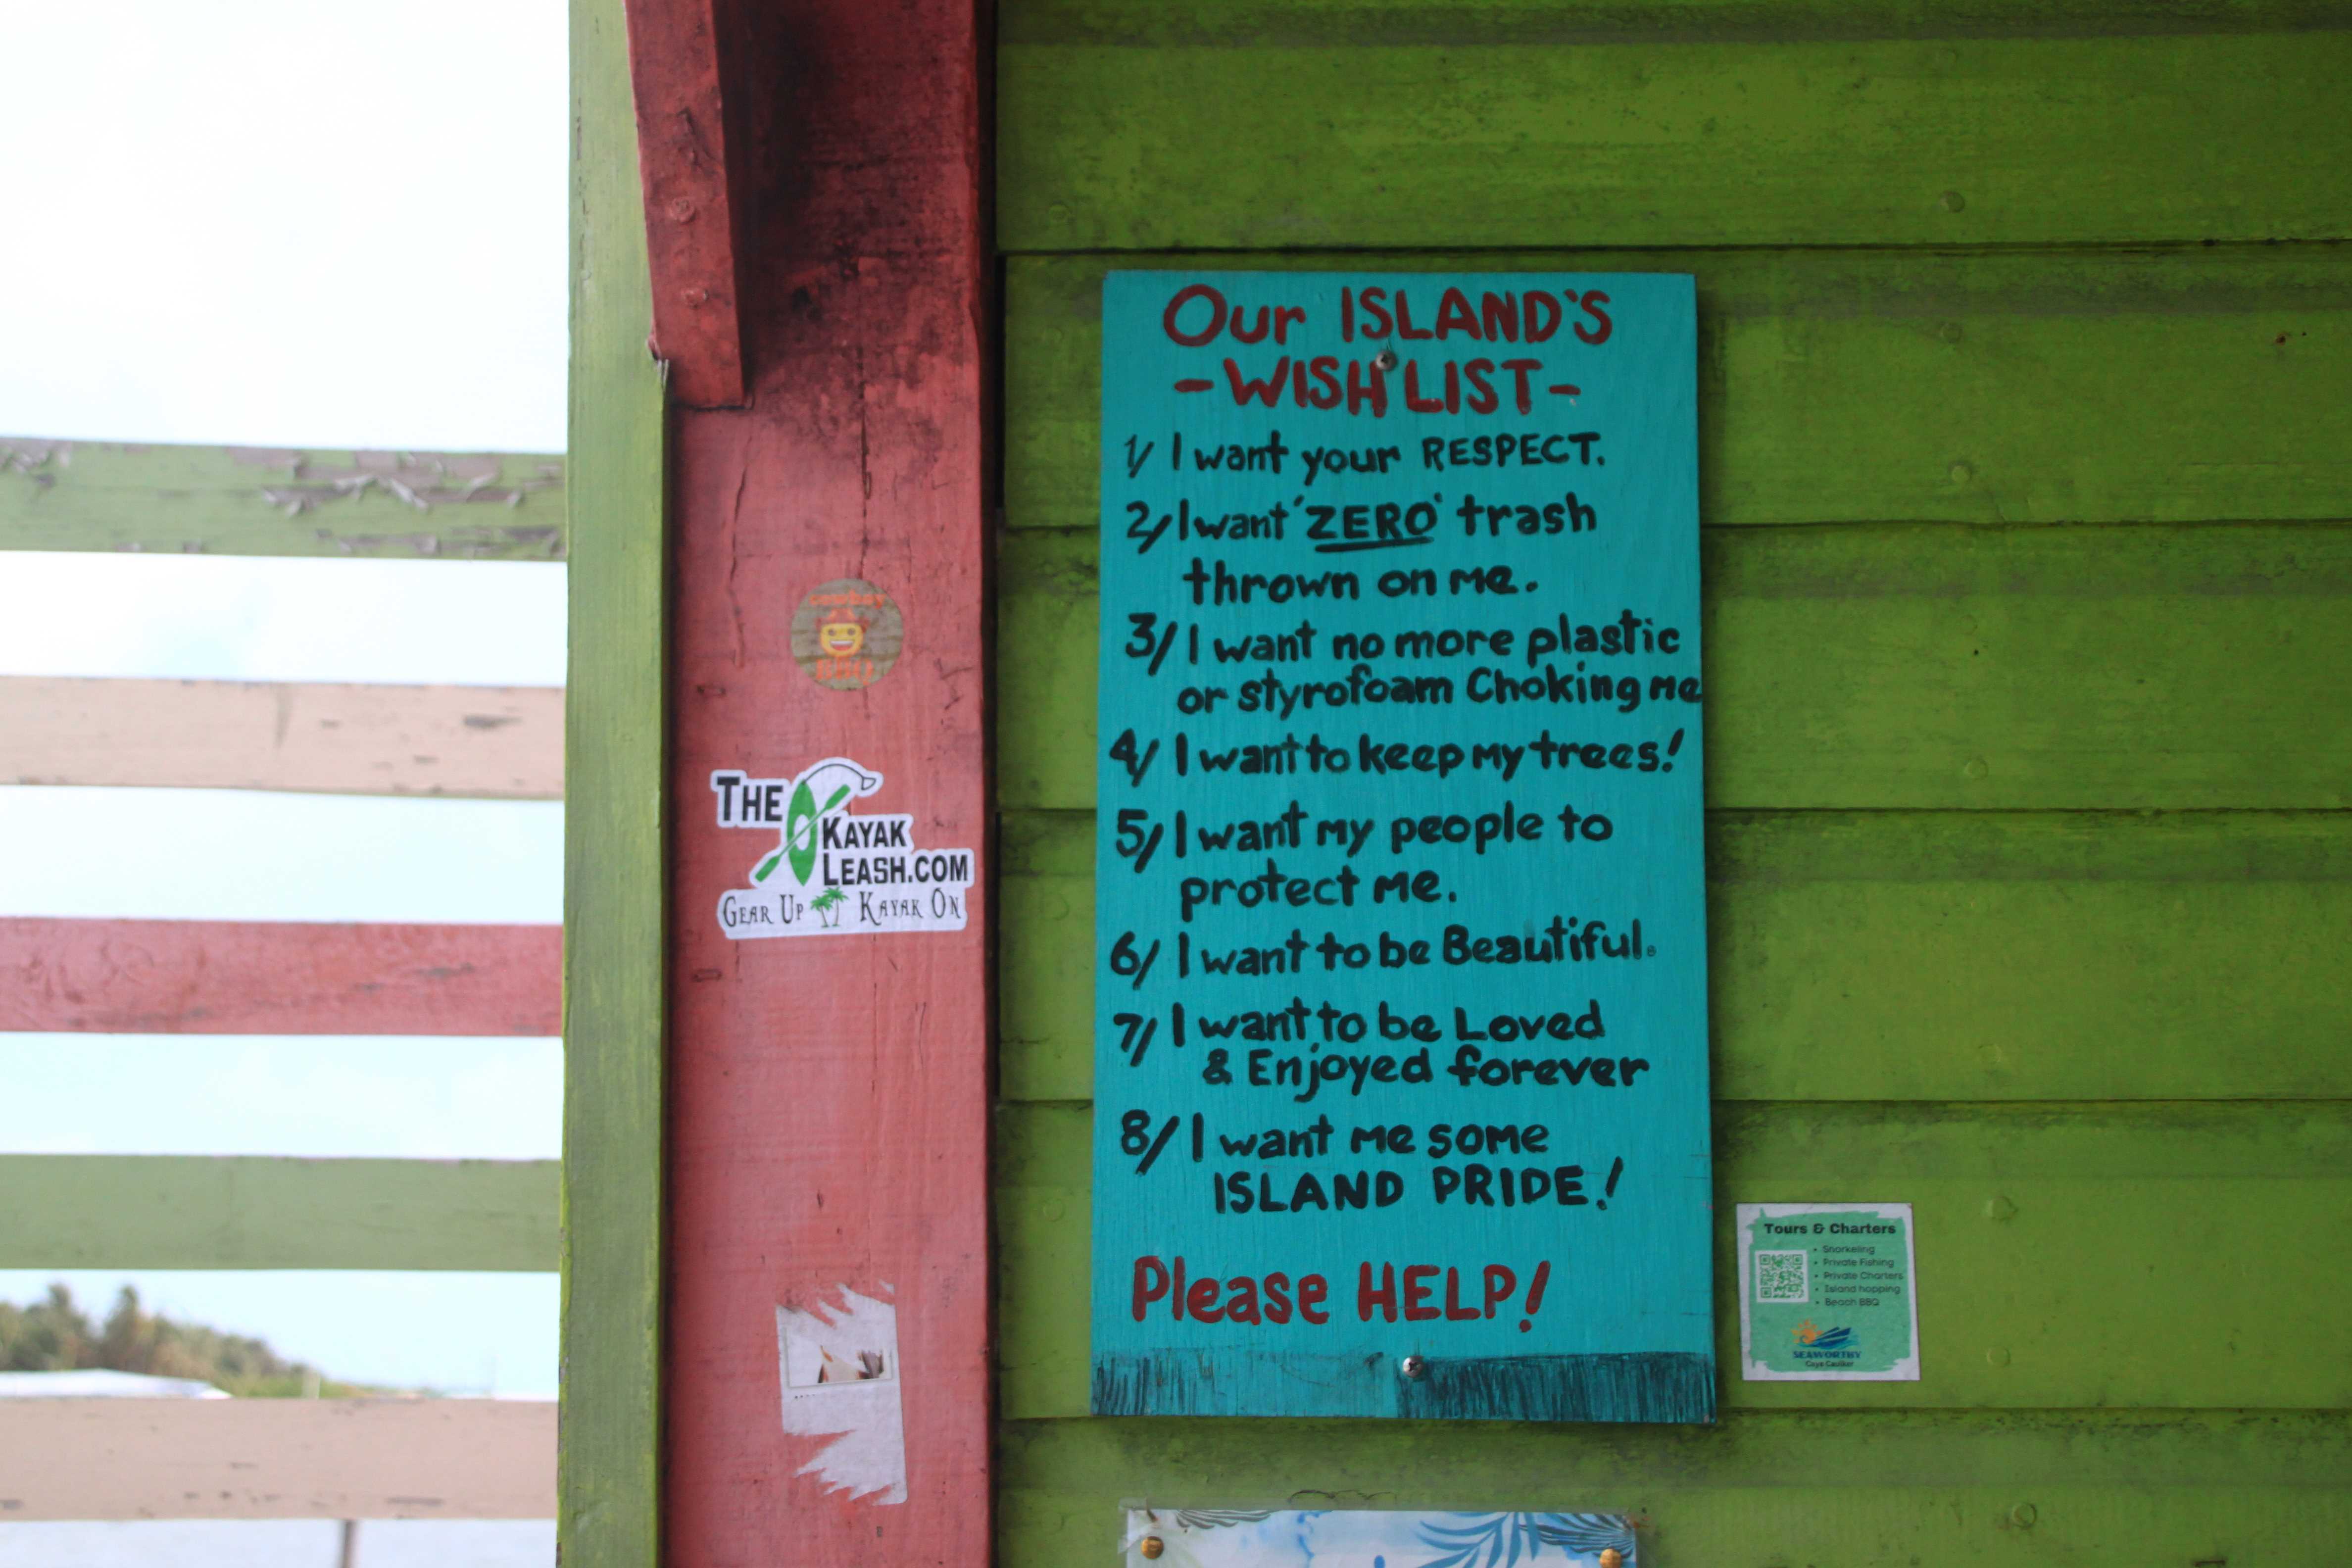 Our ISLAND'S
-WISH LIST-
1/ I want your RESPECT.
2/ I want 'ZERO' trash
thrown on me.
3/ I want no more plastic
or styrofoam Choking me
4/ I want to keep my trees!
5/ I want my people to
protect me.
6/ I want to be Beautiful.
7/ I want to be Loved
& Enjoyed forever
8/ I want me some
ISLAND PRIDE!
Please HELP!
cowboy
BBQ
THE
KAYAK
LEASH.COM
GEAR UP KAYAK ON
Tours & Charters
• Snorkeling
• Private Fishing
• Private Charters
• Island hopping
• Beach BBQ
SEAWORTHY
Caye Caulker